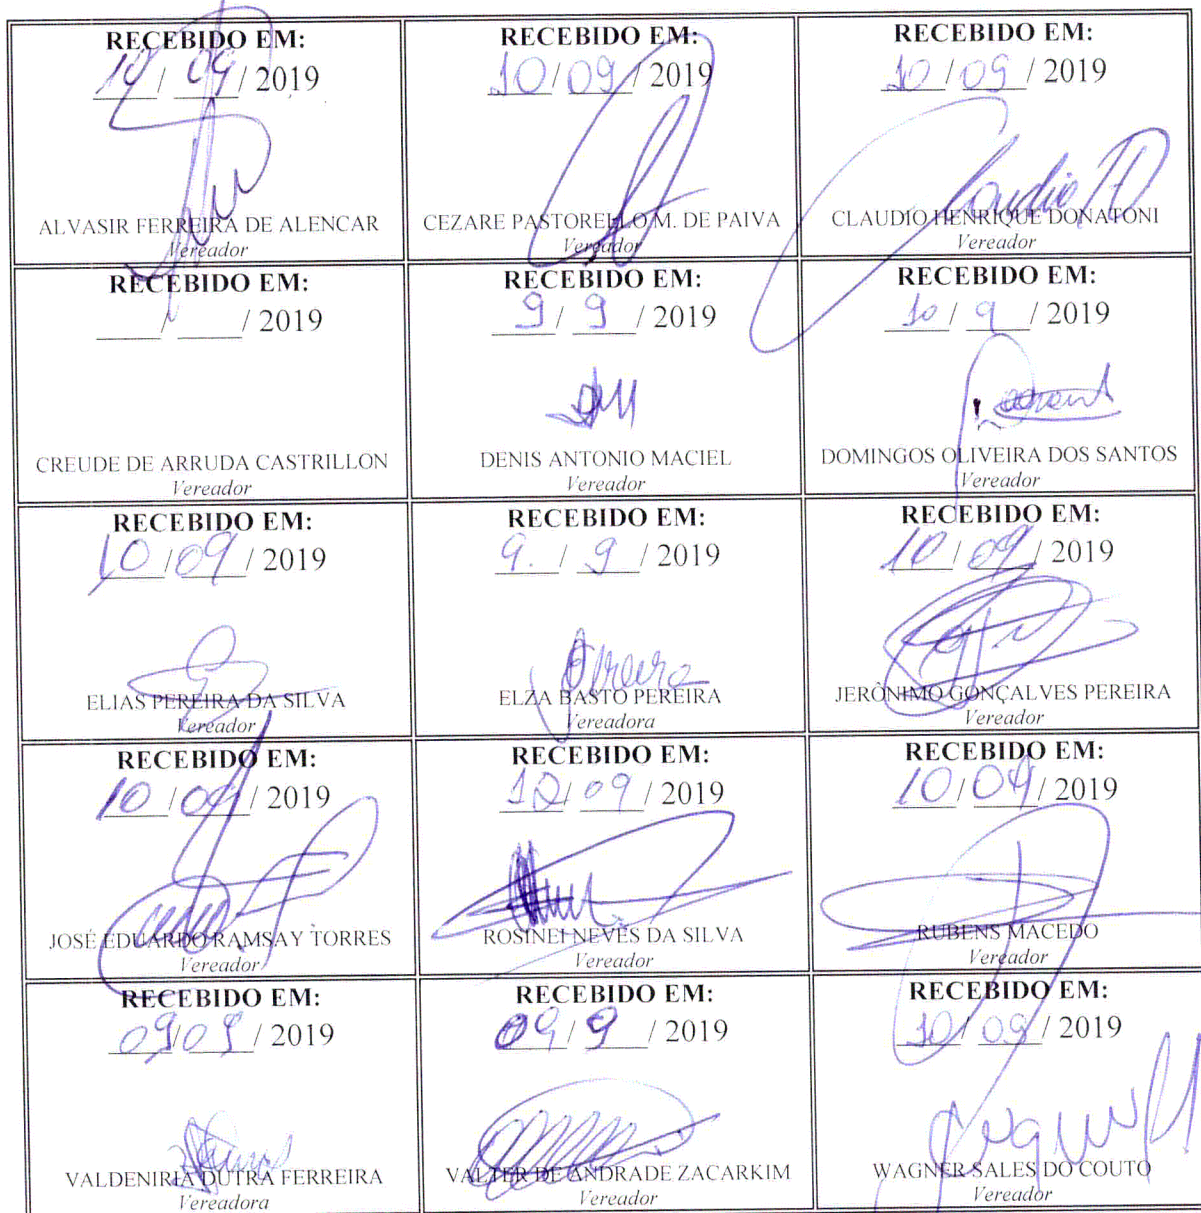 RECEBIDO EM:
10 / 09 / 2019
ALVASIR FERREIRA DE ALENCAR
Vereador
RECEBIDO EM:
10/09 / 2019
CEZARE PASTORELLO M. DE PAIVA
Vereador
RECEBIDO EM:
10 / 09 / 2019
Claudio
CLAUDIO HENRIQUE DONATONI
Vereador
RECEBIDO EM:
____/ ____ / 2019
CREUDE DE ARRUDA CASTRILLON
Vereador
RECEBIDO EM:
9 / 9 / 2019
DENIS ANTONIO MACIEL
Vereador
RECEBIDO EM:
10 / 9 / 2019
DOMINGOS OLIVEIRA DOS SANTOS
Vereador
RECEBIDO EM:
10 / 09 / 2019
ELIAS PEREIRA DA SILVA
Vereador
RECEBIDO EM:
9. / 9 / 2019
ELZA BASTO PEREIRA
Vereadora
RECEBIDO EM:
10 / 09 / 2019
JERÔNIMO GONÇALVES PEREIRA
Vereador
RECEBIDO EM:
10 / 09 / 2019
JOSÉ EDUARDO RAMSAY TORRES
Vereador
RECEBIDO EM:
10/ 09 / 2019
ROSINEI NEVES DA SILVA
Vereador
RECEBIDO EM:
10 / 09 / 2019
RUBENS MACEDO
Vereador
RECEBIDO EM:
09/09 / 2019
VALDENIRIA DUTRA FERREIRA
Vereadora
RECEBIDO EM:
09 / 9 / 2019
VALTER DE ANDRADE ZACARKIM
Vereador
RECEBIDO EM:
10/ 09 / 2019
WAGNER SALES DO COUTO
Vereador